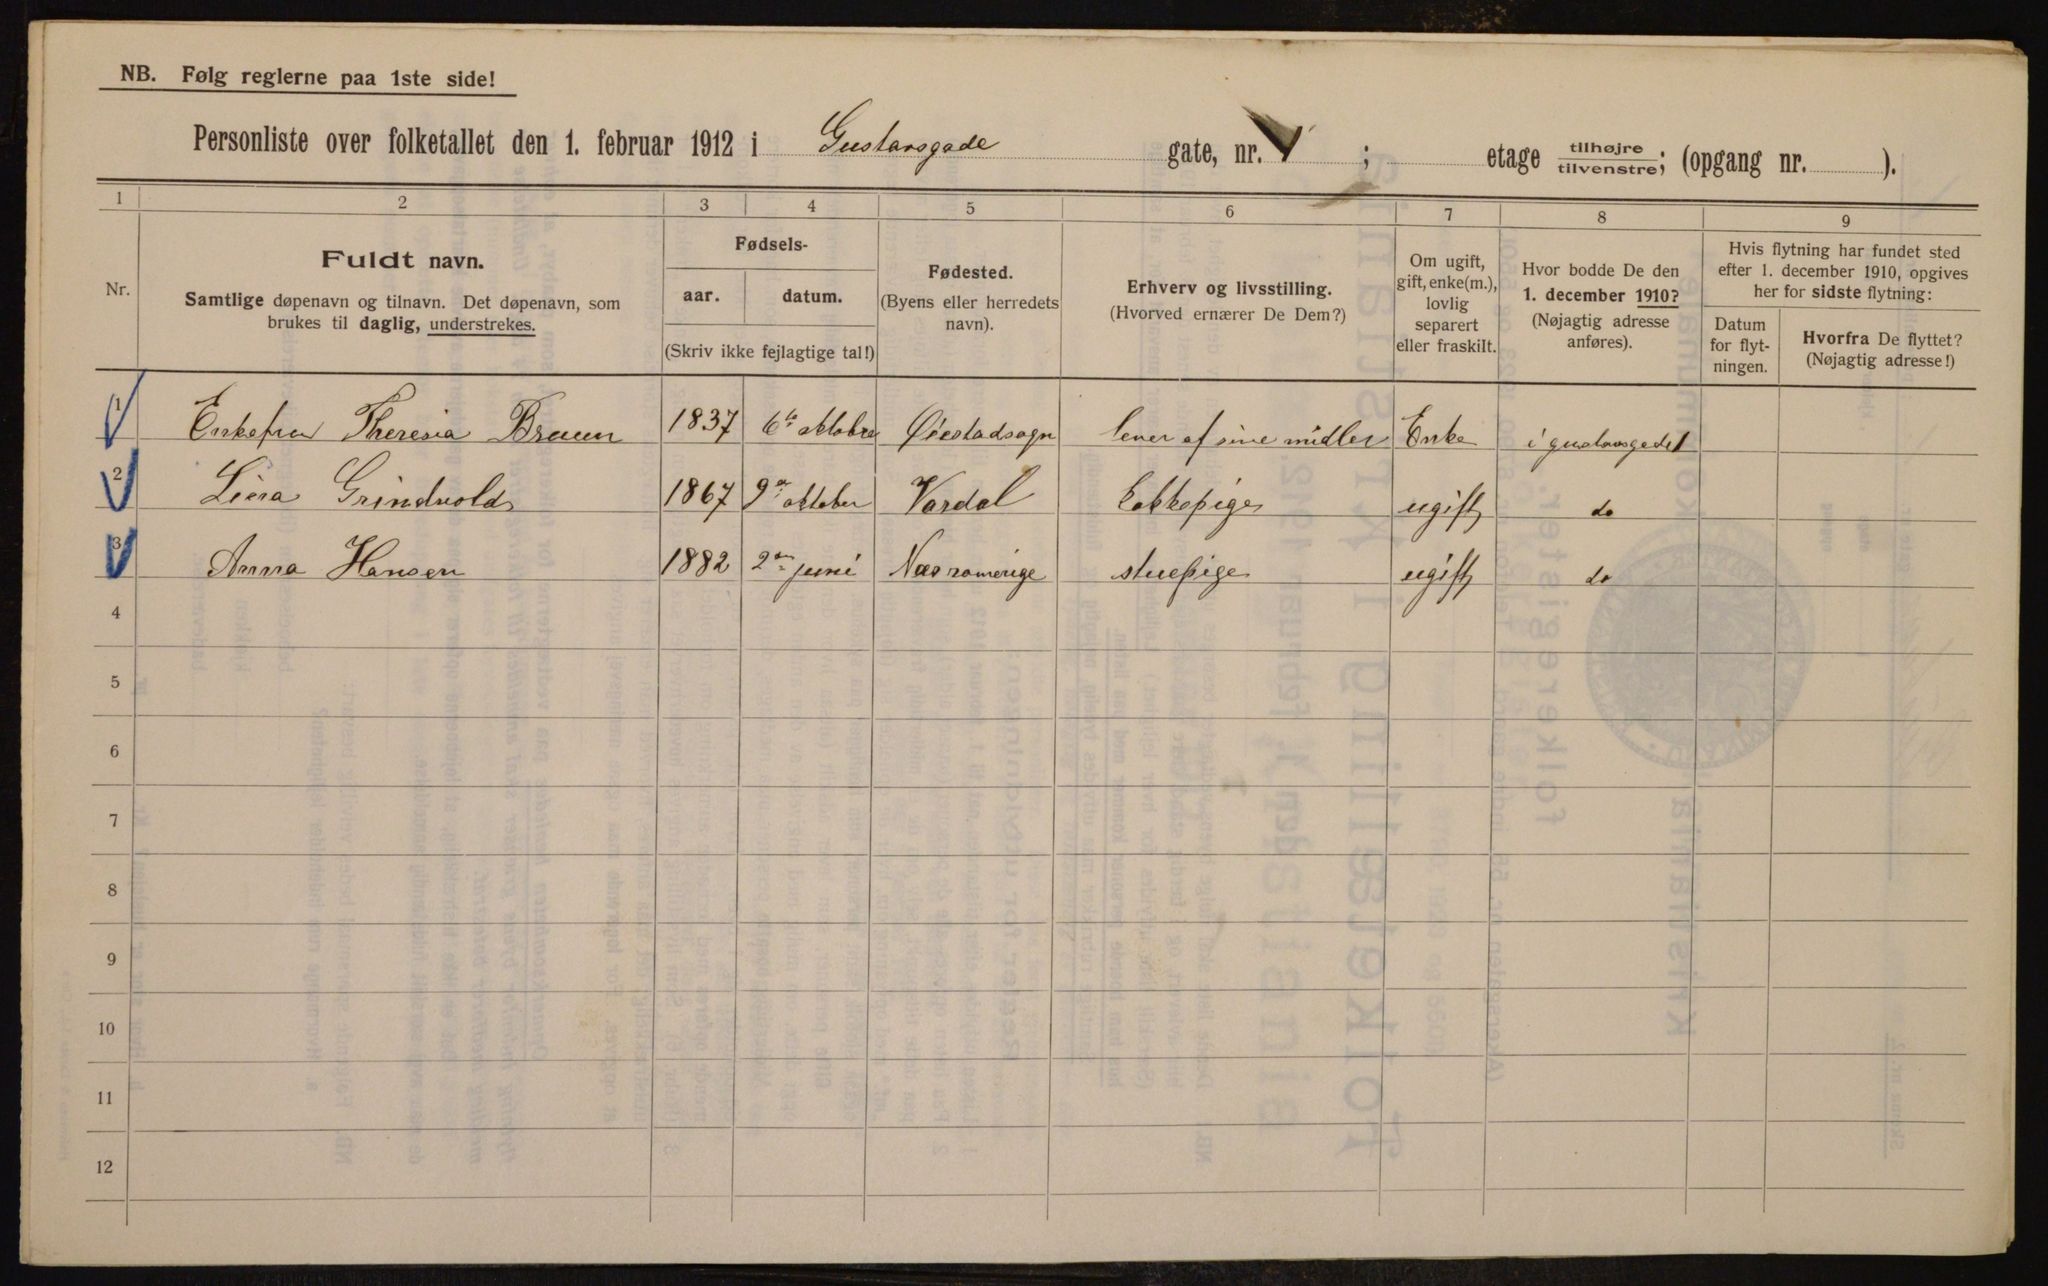 NB. Følg reglerne paa 1ste side!
Personliste over folketallet den 1. februar 1912 i Gustavsgade gate, nr. 1; etage tilhøjre/tilvenstre; (opgang nr. ).
1 2 3 4 5 6 7 8 9
Nr.
Fuldt navn.
Samtlige døpenavn og tilnavn. Det døpenavn, som
brukes til daglig, understrekes.
Fødsels-
aar. datum.
(Skriv ikke fejlagtige tal!)
Fødested.
(Byens eller herredets
navn).
Erhverv og livsstilling.
(Hvorved ernærer De Dem?)
Om ugift,
gift, enke(m.),
lovlig
separert
eller fraskilt.
Hvor bodde De den
1. december 1910?
(Nøjagtig adresse
anføres).
Hvis flytning har fundet sted
efter 1. december 1910, opgives
her for sidste flytning:
Datum
for flyt-
ningen.
Hvorfra De flyttet?
(Nøjagtig adresse!)
1 Enkefru Theresia Bruun 1837 6te oktober Øiestadsogn lever af sine midler Enke i gustavsgade 1
2 Lina Grindvold 1867 9de oktober Vardal kokkepige ugift do
3 Anna Hansen 1882 2den juni Næs romerige stuepige ugift do
4
5
6
7
8
9
10
11
12